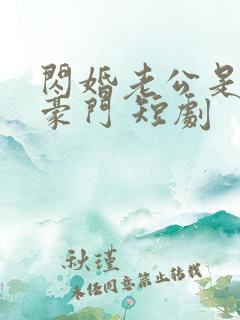 閃婚老公是
豪門 短劇
秋瑾
未經同意禁止轉載